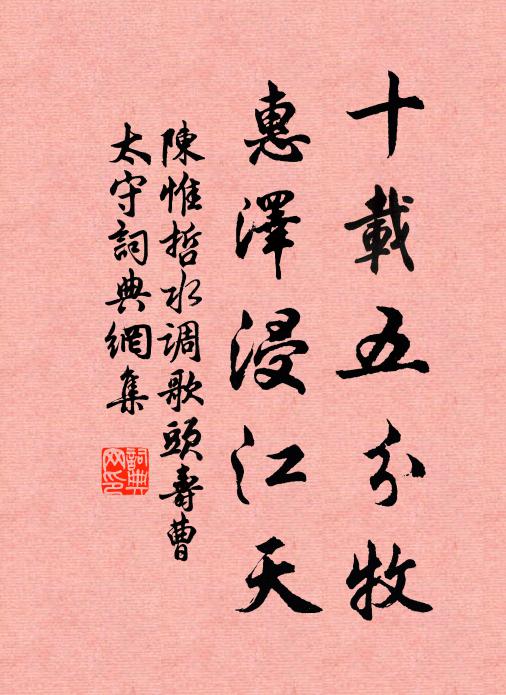 十載五分牧
惠澤浸江天
陳惟哲水调歌頭壽曹
太守詞典網集
詞典网印